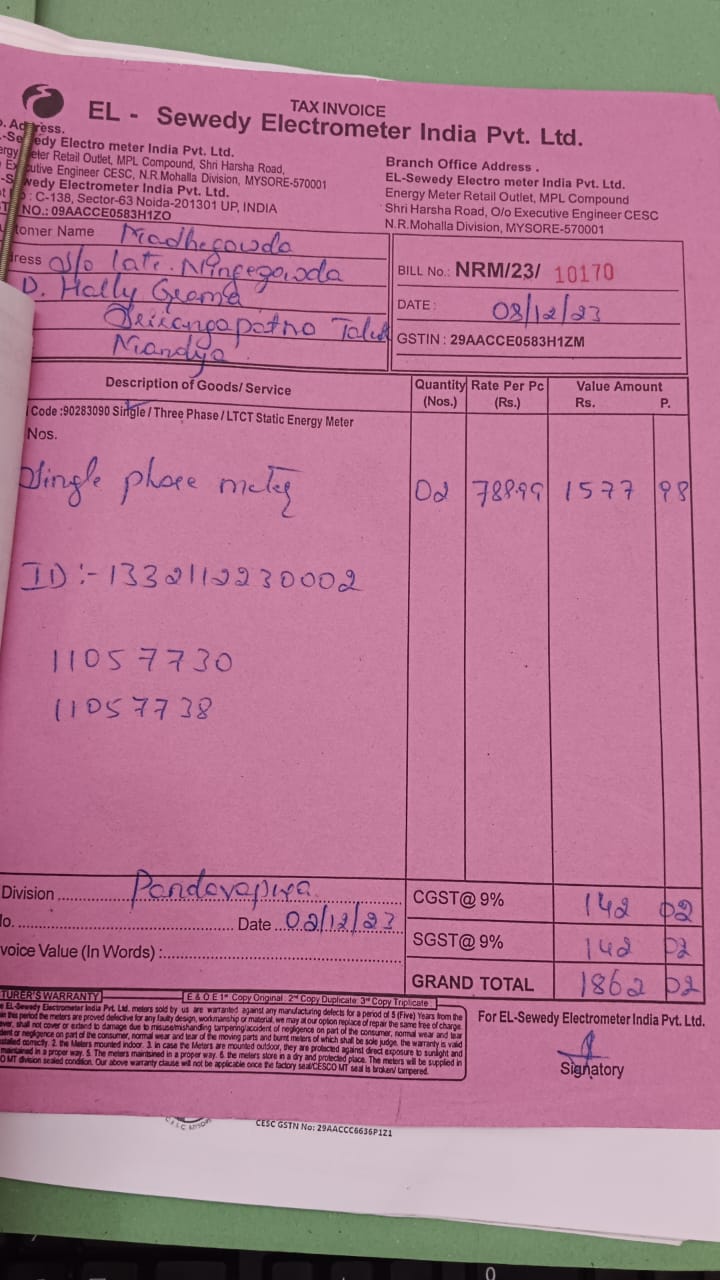 TAX INVOICE
EL - Sewedy Electrometer India Pvt. Ltd.
ress.
edy Electro meter India Pvt. Ltd.
eter Retail Outlet, MPL Compound, Shri Harsha Road,
utive Engineer CESC, N.R.Mohalla Division, MYSORE-570001
wedy Electrometer India Pvt. Ltd.
: C-138, Sector-63 Noida-201301 UP, INDIA
NO.: 09AACCE0583H1ZO
Branch Office Address .
EL-Sewedy Electro meter India Pvt. Ltd.
Energy Meter Retail Outlet, MPL Compound
Shri Harsha Road, O/o Executive Engineer CESC
N.R.Mohalla Division, MYSORE-570001
tomer Name Madhegowda
ress S/o late. Ningegowda
D. Hally Grama
Srirangapatna Taluk
Mandya
BILL No.: NRM/23/ 10170
DATE : 08/12/23
GSTIN : 29AACCE0583H1ZM
Description of Goods/ Service Quantity (Nos.) Rate Per Pc (Rs.) Value Amount Rs. P.
Code :90283090 Single / Three Phase / LTCT Static Energy Meter
Nos.
Single phase meter 02 788.99 1577 98
ID :- 1332112230002
11057730
11057738
Division Pandavapura
CGST@ 9% 142 02
lo. Date 02/12/23
SGST@ 9% 142 02
voice Value (In Words) :
GRAND TOTAL 1862 02
TURER'S WARRANTY E & O E 1st Copy Original 2nd Copy Duplicate 3rd Copy Triplicate
e EL-Sewedy Electrometer India Pvt. Ltd. meters sold by us are warranted against any manufacturing defects for a period of 5 (Five) Years from the
in this period the meters are proved defective for any faulty design, workmanship or material, we may at our option replace of repair the same free of charge.
ever, shall not cover or extend to damage due to misuse/mishandling tampering/accident of negligence on part of the consumer, normal wear and tear
dent or negligence on part of the consumer, normal wear and tear of the moving parts and burnt meters of which shall be sole judge. the warranty is valid
stalled correctly. 2. the Meters mounted indoor. 3. in case the Meters are mounted outdoor, they are protected against direct exposure to sunlight and
maintained in a proper way. 5. The meters maintained in a proper way. 6. the meters store in a dry and protected place. The meters will be supplied in
O MT division sealed condition. Our above warranty clause will not be applicable once the factory seal/CESCO MT seal is broken/ tampered.
For EL-Sewedy Electrometer India Pvt. Ltd.
Signatory
CESC GSTN No: 29AACCC6636P1Z1